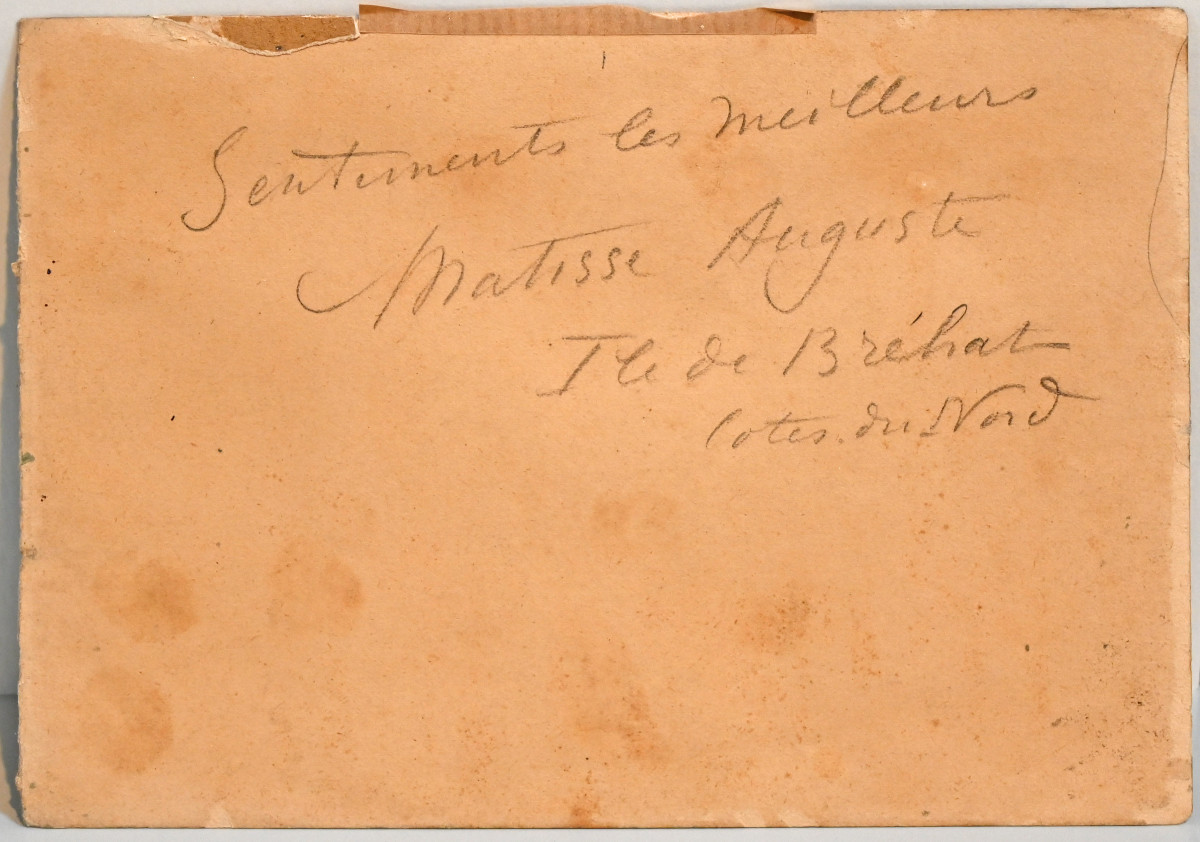 Sentiments les meilleurs
Matisse Auguste
Ile de Bréhat
Cotes.du Nord